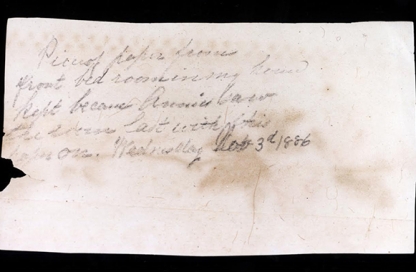 Piece of paper from
front bed room in my house
kept because Annie saw
the room last with this
paper on. Wednesday Nov 3d 1886